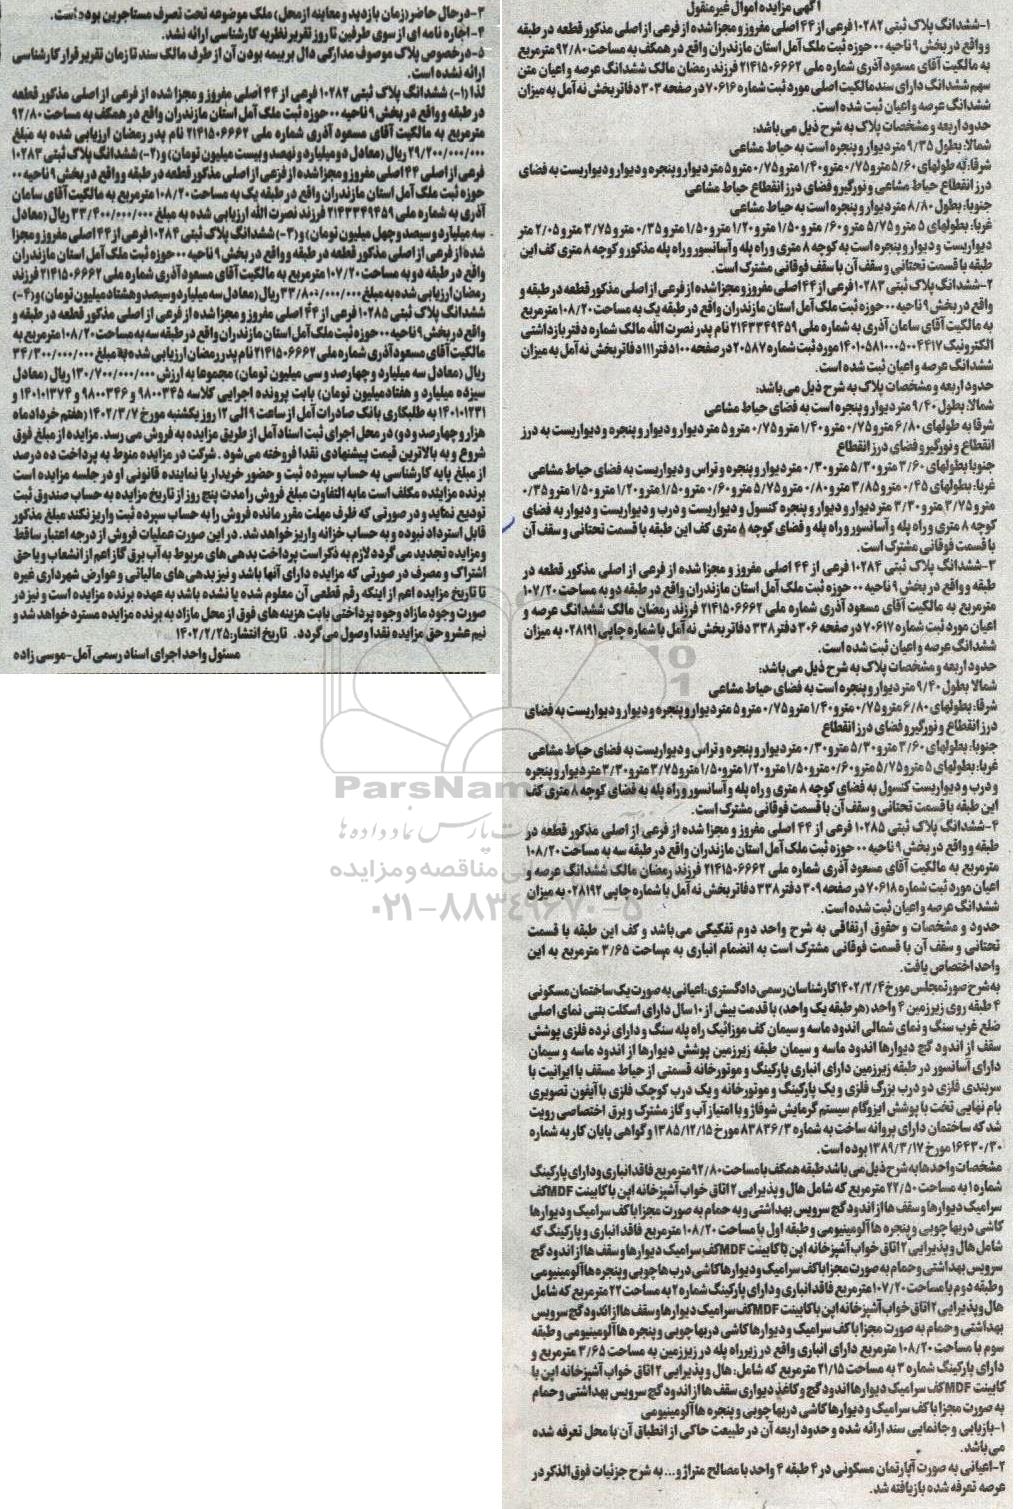 آگهی مزایده اموال غیرمنقول
۱-ششدانگ پلاک ثبتی ۱۰۲۸۲ فرعی از ۴۴ اصلی مفروز و مجزا شده از فرعی از اصلی مذکور قطعه در طبقه
و واقع در بخش ۹ ناحیه ۰۰ حوزه ثبت ملک آمل استان مازندران واقع در همکف به مساحت ۹۲/۸۰ مترمربع
به مالکیت آقای مسعود آذری شماره ملی ۲۱۴۱۵۰۶۶۶۲ فرزند رمضان مالک ششدانگ عرصه و اعیان متن
سهم ششدانگ دارای سند مالکیت اصلی مورد ثبت شماره ۷۰۶۱۶ در صفحه ۳۰۳ دفاتر بخش نه آمل به میزان
ششدانگ عرصه و اعیان ثبت شده است.
حدود اربعه و مشخصات پلاک به شرح ذیل می باشد:
شمالا: بطول ۹/۳۵ متر دیوار و پنجره است به حیاط مشاعی
شرقا: به طولهای ۵/۶۰ مترو ۰/۷۵ مترو ۱/۴۰ مترو ۰/۷۵ مترو ۵ متر دیوار و پنجره و دیوار و دیواریست به فضای
درز انقطاع حیاط مشاعی و نورگیر و فضای درز انقطاع حیاط مشاعی
جنوبا: بطول ۸/۸۰ متر دیوار و پنجره است به حیاط مشاعی
غربا: بطولهای ۵ مترو ۵/۷۵ مترو ۰/۶۰ مترو ۱/۵۰ مترو ۱/۲۰ مترو ۱/۵۰ مترو ۰/۳۵ مترو ۳/۷۵ مترو ۲/۰۵ متر
دیواریست و دیوار و پنجره است به کوچه ۸ متری و راه پله و آسانسور و راه پله مذکور و کوچه ۸ متری کف این
طبقه با قسمت تحتانی و سقف آن با سقف فوقانی مشترک است.
۲-ششدانگ پلاک ثبتی ۱۰۲۸۳ فرعی از ۴۴ اصلی مفروز و مجزا شده از فرعی از اصلی مذکور قطعه در طبقه و
واقع در بخش ۹ ناحیه ۰۰ حوزه ثبت ملک آمل استان مازندران واقع در طبقه یک به مساحت ۱۰۸/۲۰ مترمربع
به مالکیت آقای سامان آذری به شماره ملی ۲۱۴۳۳۴۹۴۵۹ نام پدر نصرت الله مالک شماره دفتر بازداشتی
الکترونیک ۱۴۰۱۰۵۸۱۰۰۰۵۰۰۴۴۱۷ مورد ثبت شماره ۲۰۵۸۷ در صفحه ۱۰۰ دفتر ۱۱۱ دفاتر بخش نه آمل به میزان
ششدانگ عرصه و اعیان ثبت شده است.
حدود اربعه و مشخصات پلاک به شرح ذیل می باشد:
شمالا: بطول ۹/۴۰ متر دیوار و پنجره است به فضای حیاط مشاعی
شرقا به طولهای ۶/۸۰ مترو ۰/۷۵ مترو ۱/۴۰ مترو ۰/۷۵ مترو ۵ متر دیوار و دیوار و پنجره و دیواریست به درز
انقطاع و نورگیر و فضای درز انقطاع
جنوبا بطولهای ۳/۶۰ مترو ۵/۳۰ مترو ۰/۳۰ متر دیوار و پنجره و تراس و دیواریست به فضای حیاط مشاعی
غربا: بطولهای ۰/۴۵ مترو ۳/۸۵ مترو ۰/۸۰ مترو ۵/۷۵ مترو ۰/۶۰ مترو ۱/۵۰ مترو ۱/۲۰ مترو ۱/۵۰ مترو ۰/۳۵
مترو ۳/۷۵ مترو ۳/۳۰ متر دیوار دیوار و پنجره کنسول و دیواریست و درب و دیواریست و دیوار به فضای
کوچه ۸ متری و راه پله و آسانسور و راه پله و فضای کوچه ۸ متری کف این طبقه با قسمت تحتانی و سقف آن
با قسمت فوقانی مشترک است.
۳-ششدانگ پلاک ثبتی ۱۰۲۸۴ فرعی از ۴۴ اصلی مفروز و مجزا شده از فرعی از اصلی مذکور قطعه در
طبقه و واقع در بخش ۹ ناحیه ۰۰ حوزه ثبت ملک آمل استان مازندران واقع در طبقه دو به مساحت ۱۰۷/۲۰
مترمربع به مالکیت آقای مسعود آذری شماره ملی ۲۱۴۱۵۰۶۶۶۲ فرزند رمضان مالک ششدانگ عرصه و
اعیان مورد ثبت شماره ۷۰۶۱۷ در صفحه ۳۰۶ دفتر ۳۳۸ دفاتر بخش نه آمل با شماره چاپی ۰۲۸۱۹۱ به میزان
ششدانگ عرصه و اعیان ثبت شده است.
حدود اربعه و مشخصات پلاک به شرح ذیل می باشد:
شمالا بطول ۹/۴۰ متر دیوار و پنجره است به فضای حیاط مشاعی
شرقا: بطولهای ۶/۸۰ مترو ۰/۷۵ مترو ۱/۴۰ مترو ۰/۷۵ مترو ۵ متر دیوار و پنجره و دیوار و دیواریست به فضای
درز انقطاع و نورگیر و فضای درز انقطاع
جنوبا: بطولهای ۳/۶۰ مترو ۵/۳۰ مترو ۰/۳۰ متر دیوار و پنجره و تراس و دیواریست به فضای حیاط مشاعی
غربا: بطولهای ۵ مترو ۵/۷۵ مترو ۰/۶۰ مترو ۱/۵۰ مترو ۱/۲۰ مترو ۱/۵۰ مترو ۳/۷۵ مترو ۳/۳۰ متر دیوار و پنجره
و درب و دیواریست کنسول به فضای کوچه ۸ متری و راه پله و آسانسور و راه پله به فضای کوچه ۸ متری کف
این طبقه با قسمت تحتانی و سقف آن با قسمت فوقانی مشترک است.
۴-ششدانگ پلاک ثبتی ۱۰۲۸۵ فرعی از ۴۴ اصلی مفروز و مجزا شده از فرعی از اصلی مذکور قطعه در
طبقه و واقع در بخش ۹ ناحیه ۰۰ حوزه ثبت ملک آمل استان مازندران واقع در طبقه سه به مساحت ۱۰۸/۲۰
مترمربع به مالکیت آقای مسعود آذری شماره ملی ۲۱۴۱۵۰۶۶۶۲ فرزند رمضان مالک ششدانگ عرصه و
اعیان مورد ثبت شماره ۷۰۶۱۸ در صفحه ۳۰۹ دفتر ۳۳۸ دفاتر بخش نه آمل با شماره چاپی ۰۲۸۱۹۲ به میزان
ششدانگ عرصه و اعیان ثبت شده است.
حدود و مشخصات و حقوق ارتفاقی به شرح واحد دوم تفکیکی می باشد و کف این طبقه با قسمت
تحتانی و سقف آن با قسمت فوقانی مشترک است به انضمام انباری به مساحت ۳/۶۵ مترمربع به این
واحد اختصاص یافت.
به شرح صورتمجلس مورخ ۱۴۰۲/۲/۴ کارشناسان رسمی دادگستری: اعیانی به صورت یک ساختمان مسکونی
۴ طبقه روی زیرزمین ۴ واحد (هر طبقه یک واحد) با قدمت بیش از ۱۰ سال دارای اسکلت بتنی نمای اصلی
ضلع غرب سنگ و نمای شمالی اندود ماسه و سیمان کف موزائیک راه پله سنگ و دارای نرده فلزی پوشش
سقف از اندود گچ دیوارها اندود ماسه و سیمان طبقه زیرزمین پوشش دیوارها از اندود ماسه و سیمان
دارای آسانسور در طبقه زیرزمین دارای انباری پارکینگ و موتورخانه قسمتی از حیاط مسقف با ایرانیت با
سربندی فلزی دو درب بزرگ فلزی و یک پارکینگ و موتورخانه و یک درب کوچک فلزی با آیفون تصویری
بام نهایی تخت با پوشش ایزوگام سیستم گرمایش شوفاژ و با امتیاز آب و گاز مشترک و برق اختصاصی رویت
شد که ساختمان دارای پروانه ساخت به شماره ۸۳۸۳۶/۳ مورخ ۱۳۸۵/۱۲/۱۵ و گواهی پایان کار به شماره
۱۶۴۳۰/۳۰ مورخ ۱۳۸۹/۳/۱۷ بوده است.
مشخصات واحدها به شرح ذیل می باشد طبقه همکف با مساحت ۹۲/۸۰ مترمربع فاقد انباری و دارای پارکینگ
شماره ۱ به مساحت ۲۲/۵۰ مترمربع که شامل هال و پذیرایی ۲ اتاق خواب آشپزخانه اپن با کابینت MDF کف
سرامیک دیوارها و سقف ها از اندود گچ سرویس بهداشتی و به حمام به صورت مجزا با کف سرامیک و دیوارها
کاشی دربها چوبی و پنجره ها آلومینیومی و طبقه اول با مساحت ۱۰۸/۲۰ مترمربع فاقد انباری و پارکینگ که
شامل هال و پذیرایی ۲ اتاق خواب آشپزخانه اپن با کابینت MDF کف سرامیک دیوارها و سقف ها از اندود گچ
سرویس بهداشتی و حمام به صورت مجزا با کف سرامیک و دیوارها کاشی درب ها چوبی و پنجره ها آلومینیومی
و طبقه دوم با مساحت ۱۰۷/۲۰ مترمربع فاقد انباری و دارای پارکینگ شماره ۲ به مساحت ۲۲ مترمربع که شامل
هال و پذیرایی ۲ اتاق خواب آشپزخانه اپن با کابینت MDF کف سرامیک دیوارها و سقف ها از اندود گچ سرویس
بهداشتی و حمام به صورت مجزا با کف سرامیک و دیوارها کاشی دربها چوبی و پنجره ها آلومینیومی و طبقه
سوم با مساحت ۱۰۸/۲۰ مترمربع دارای انباری واقع در زیر راه پله در زیرزمین به مساحت ۳/۶۵ مترمربع و
دارای پارکینگ شماره ۳ به مساحت ۲۱/۱۵ مترمربع که شامل: هال و پذیرایی ۲ اتاق خواب آشپزخانه اپن با
کابینت MDF کف سرامیک دیوارها اندود گچ و کاغذ دیواری سقف ها از اندود گچ سرویس بهداشتی و حمام
به صورت مجزا با کف سرامیک و دیوارها کاشی دربها چوبی و پنجره ها آلومینیومی
۱-بازیابی و جانمایی سند ارائه شده و حدود اربعه آن در طبیعت حاکی از انطباق آن با محل تعرفه شده
می باشد.
۲-اعیانی به صورت آپارتمان مسکونی در ۴ طبقه ۴ واحد با مصالح متراژ و... به شرح جزئیات فوق الذکر در
عرصه تعرفه شده بازیافته شد.
۳-در حال حاضر (زمان بازدید و معاینه از محل) ملک موضوعه تحت تصرف مستاجرین بوده است.
۴-اجاره نامه ای از سوی طرفین تا روز تقریر نظریه کارشناسی ارائه نشد.
۵-در خصوص پلاک موصوف مدارکی دال بر بیمه بودن آن از طرف مالک سند تا زمان تقریر قرار کارشناسی
ارائه نشده است.
لذا ۱-) ششدانگ پلاک ثبتی ۱۰۲۸۲ فرعی از ۴۴ اصلی مفروز و مجزا شده از فرعی از اصلی مذکور قطعه
در طبقه و واقع در بخش ۹ ناحیه ۰۰ حوزه ثبت ملک آمل استان مازندران واقع در همکف به مساحت ۹۲/۸۰
مترمربع به مالکیت آقای مسعود آذری شماره ملی ۲۱۴۱۵۰۶۶۶۲ نام پدر رمضان ارزیابی شده به مبلغ
۲۹/۲۰۰/۰۰۰/۰۰۰ ریال (معادل دو میلیارد و نهصد و بیست میلیون تومان) و (۲-) ششدانگ پلاک ثبتی ۱۰۲۸۳
فرعی از اصلی ۴۴ اصلی مفروز و مجزا شده از فرعی از اصلی مذکور قطعه در طبقه و واقع در بخش ۹ ناحیه ۰۰
حوزه ثبت ملک آمل استان مازندران واقع در طبقه یک به مساحت ۱۰۸/۲۰ مترمربع به مالکیت آقای سامان
آذری به شماره ملی ۲۱۴۳۳۴۹۴۵۹ فرزند نصرت الله ارزیابی شده به مبلغ ۳۳/۴۰۰/۰۰۰/۰۰۰ ریال (معادل
سه میلیارد و سیصد و چهل میلیون تومان) و (۳-) ششدانگ پلاک ثبتی ۱۰۲۸۴ فرعی از ۴۴ اصلی مفروز و مجزا
شده از فرعی از اصلی مذکور قطعه در طبقه و واقع در بخش ۹ ناحیه ۰۰ حوزه ثبت ملک آمل استان مازندران
واقع در طبقه دو به مساحت ۱۰۷/۲۰ مترمربع به مالکیت آقای مسعود آذری شماره ملی ۲۱۴۱۵۰۶۶۶۲ فرزند
رمضان ارزیابی شده به مبلغ ۳۳/۸۰۰/۰۰۰/۰۰۰ ریال (معادل سه میلیارد و سیصد و هشتاد میلیون تومان) و (۴-)
ششدانگ پلاک ثبتی ۱۰۲۸۵ فرعی از ۴۴ اصلی مفروز و مجزا شده از فرعی از اصلی مذکور قطعه در طبقه و
واقع در بخش ۹ ناحیه ۰۰ حوزه ثبت ملک آمل استان مازندران واقع در طبقه سه به مساحت ۱۰۸/۲۰ مترمربع به
مالکیت آقای مسعود آذری شماره ملی ۲۱۴۱۵۰۶۶۶۲ نام پدر رمضان ارزیابی شده به مبلغ ۳۴/۳۰۰/۰۰۰/۰۰۰
ریال (معادل سه میلیارد و چهارصد و سی میلیون تومان) مجموعا به ارزش ۱۳۰/۷۰۰/۰۰۰/۰۰۰ ریال (معادل
سیزده میلیارد و هفتاد میلیون تومان) بابت پرونده اجرایی کلاسه ۹۸۰۰۳۴۵ و ۹۸۰۰۳۴۶ و ۱۴۰۱۰۱۳۷۴ و
۱۴۰۱۰۱۲۳۱ به طلبکاری بانک صادرات آمل از ساعت ۹ الی ۱۲ روز یکشنبه مورخ ۱۴۰۲/۳/۷ (هفتم خرداد ماه
هزار و چهارصد و دو) در محل اجرای ثبت اسناد آمل از طریق مزایده به فروش می رسد. مزایده از مبلغ فوق
شروع و به بالاترین قیمت پیشنهادی نقدا فروخته می شود. شرکت در مزایده منوط به پرداخت ده درصد
از مبلغ پایه کارشناسی به حساب سپرده ثبت و حضور خریدار یا نماینده قانونی او در جلسه مزایده است
برنده مزایده مکلف است مابه التفاوت مبلغ فروش را مدت پنج روز از تاریخ مزایده به حساب صندوق ثبت
تودیع نماید و در صورتی که ظرف مهلت مقرر مانده فروش را به حساب سپرده ثبت واریز نکند مبلغ مذکور
قابل استرداد نبوده و به حساب خزانه واریز خواهد شد. در این صورت عملیات فروش از درجه اعتبار ساقط
و مزایده تجدید می گردد لازم به ذکر است پرداخت بدهی های مربوط به آب برق گاز اعم از انشعاب و یا حق
اشتراک و مصرف در صورتی که مزایده دارای آنها باشد و نیز بدهی های مالیاتی و عوارض شهرداری غیره
تا تاریخ مزایده اعم از اینکه رقم قطعی آن معلوم شده یا نشده باشد به عهده برنده مزایده است و نیز در
صورت وجود مازاد وجوه پرداختی بابت هزینه های فوق از محل مازاد به برنده مزایده مسترد خواهد شد و
نیم عشر و حق مزایده نقدا وصول می گردد. تاریخ انتشار: ۱۴۰۲/۲/۲۵
مسئول واحد اجرای اسناد رسمی آمل-موسی زاده
ParsNam
پارس نماد داده ها
مناقصه و مزایده
۰۲۱-۸۸۳۴۹۶۷۰-۵